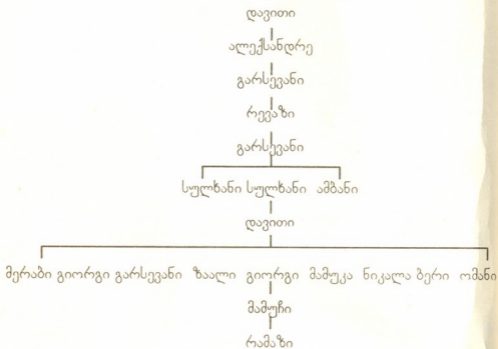 დავითი
ალექსანდრე
გარსევანი
რევაზი
გარსევანი
სულხანი სულხანი ამბანი
დავითი
მერაბი გიორგი გარსევანი ზაალი გიორგი მამუკა ნიკალა ბერი ომანი
მამუჩი
რამაზი